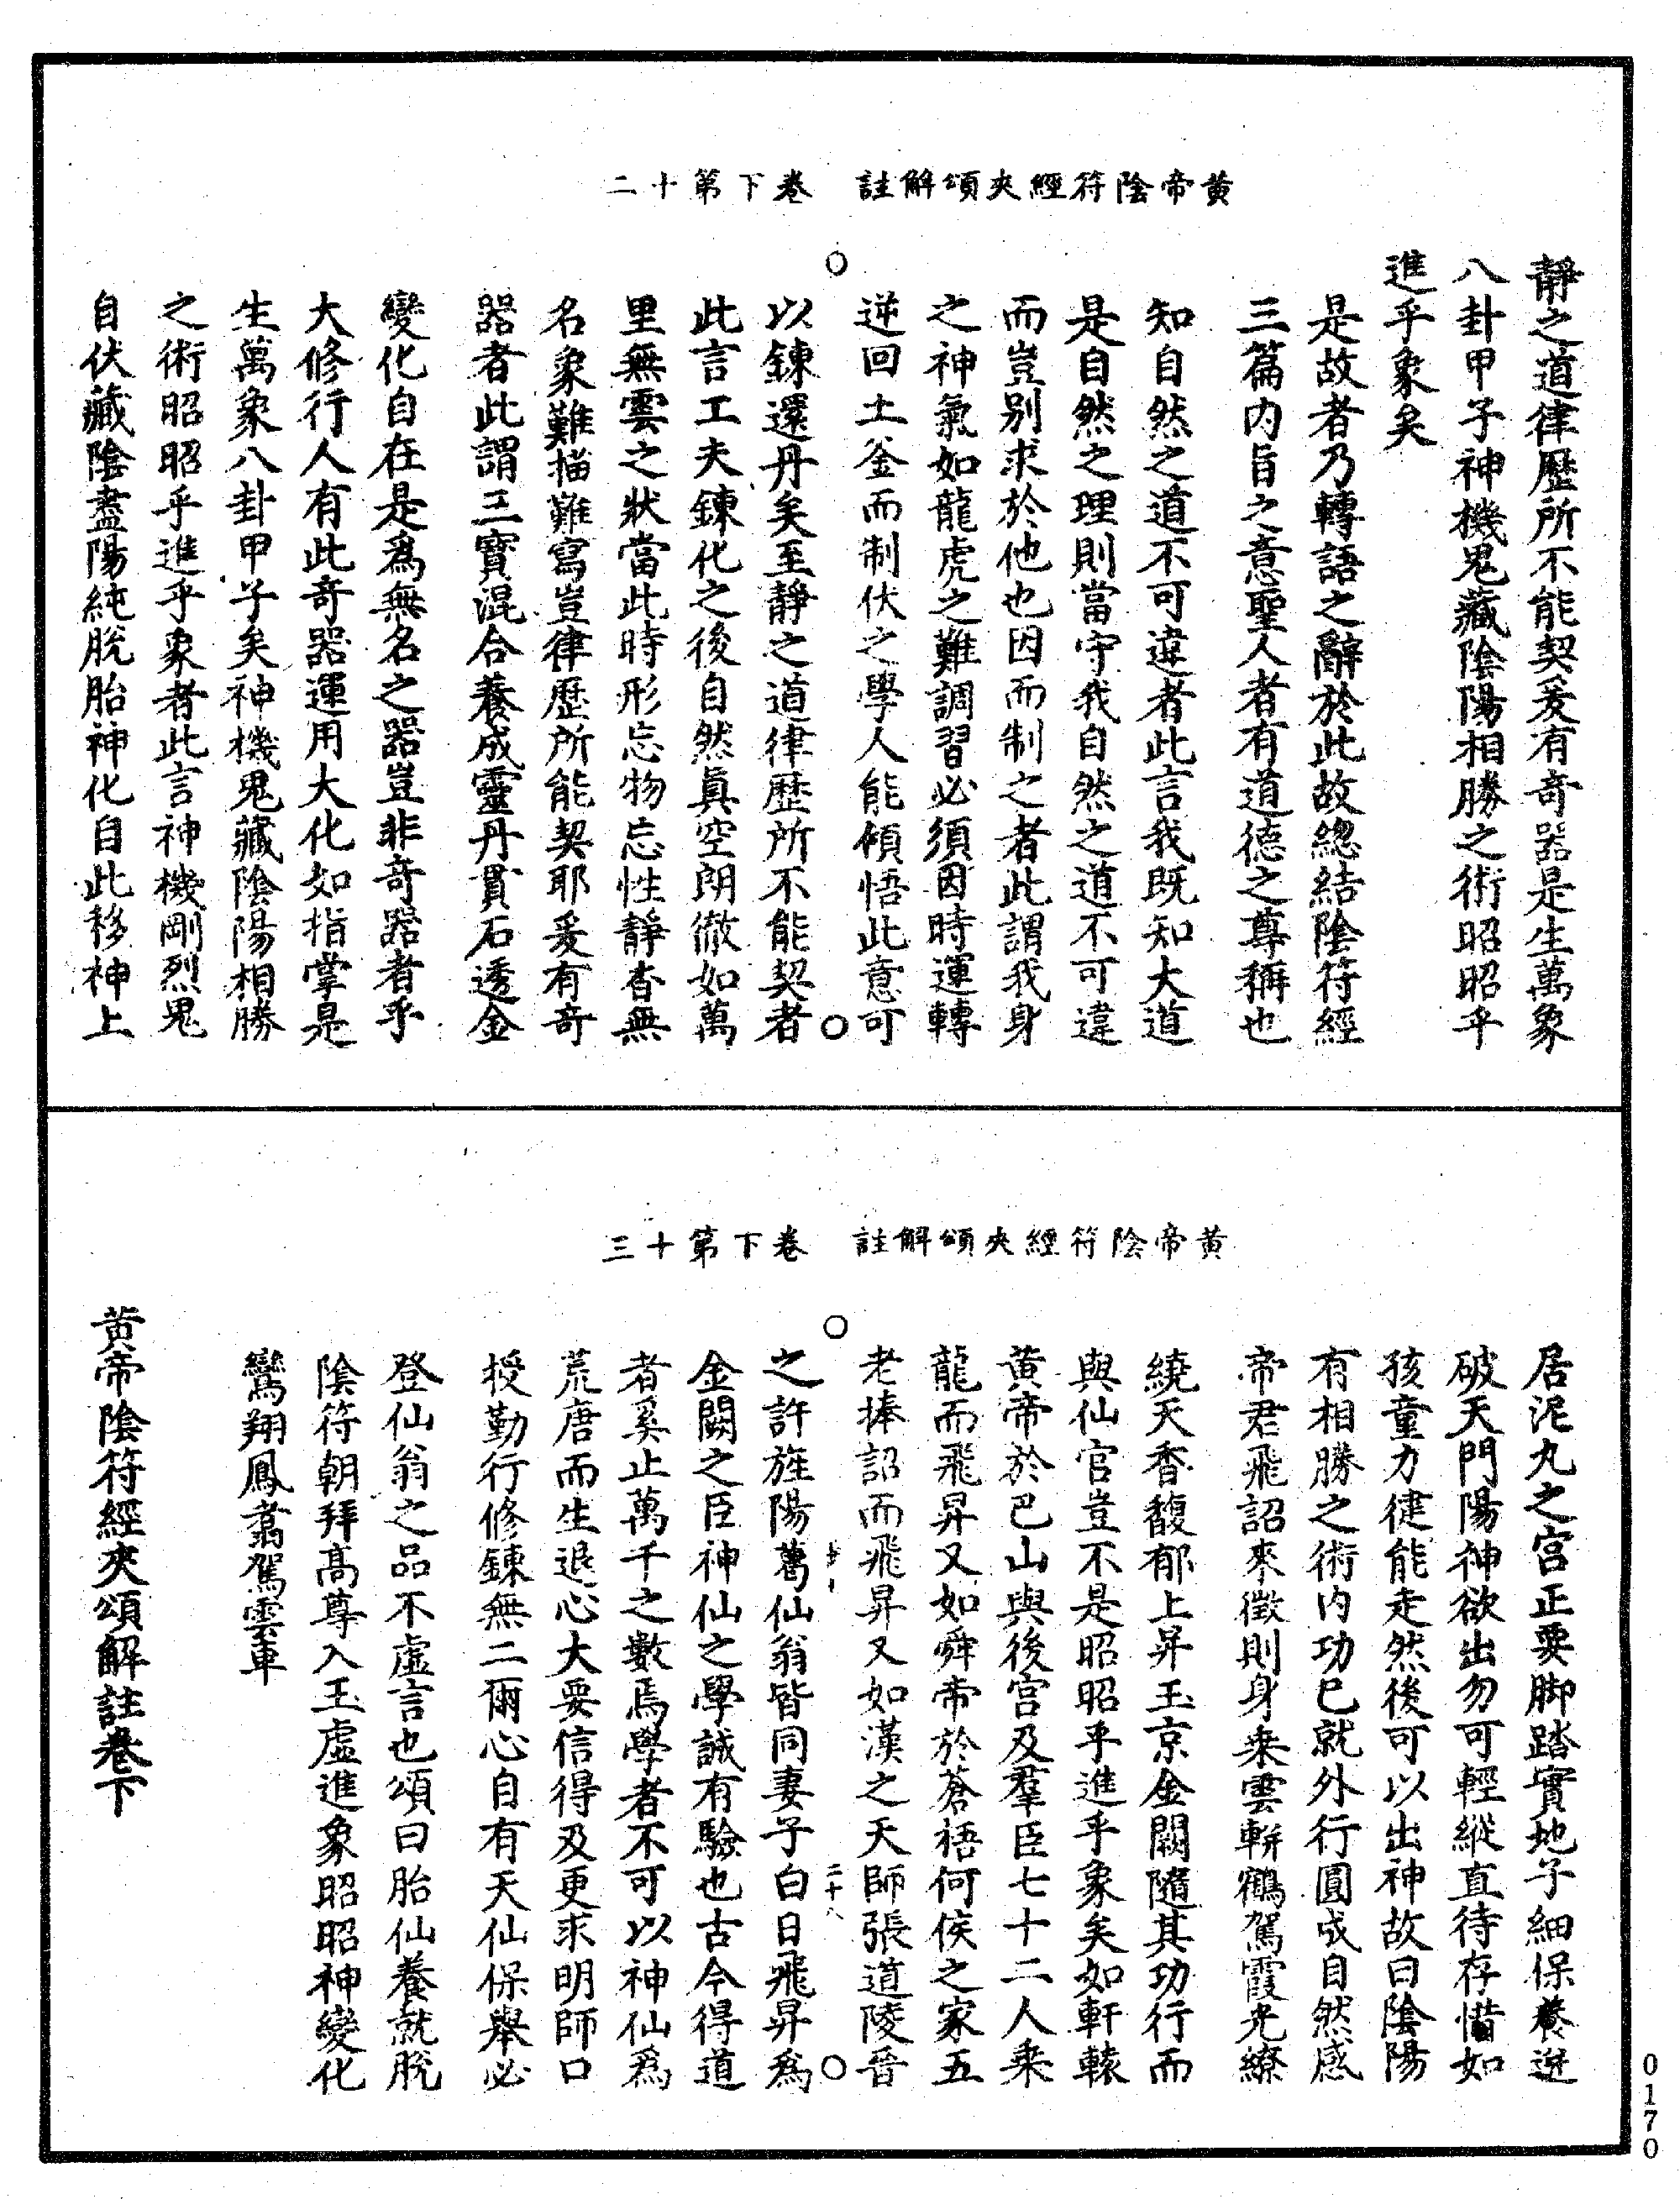 黃帝陰符經夾頌解註　卷下第十二
靜之道律歷所不能契爰有奇器是生萬象
八卦甲子神機鬼藏陰陽相勝之術昭昭乎
進乎象矣
是故者乃轉語之辭於此故總結陰符經
三篇內旨之意聖人者有道德之尊稱也
知自然之道不可違者此言我既知大道
是自然之理則當守我自然之道不可違
而豈别求於他也因而制之者此謂我身
之神氣如龍虎之難調習必須因時運轉
逆回土釜而制伏之學人能傾悟此意可
以鍊還丹矣至靜之道律歷所不能契者
此言工夫鍊化之後自然真空朗徹如萬
里無雲之狀當此時形忘物忘性靜杳無
名象難描難寫豈律歷所能契耶爰有奇
器者此謂三寶混合養成靈丹貫石透金
變化自在是爲無名之器豈非奇器者乎
大修行人有此奇器運用大化如指掌是
生萬象八卦甲子矣神機鬼藏陰陽相勝
之術昭昭乎進乎象者此言神機剛烈鬼
自伏藏陰盡陽純脫胎神化自此移神上
黃帝陰符經夾頌解註　卷下第十三
居泥丸之宫正要脚踏實地子細保養迸
破天門陽神欲出勿可輕縱直待存惜如
孩童力健能走然後可以出神故曰陰陽
有相勝之術内功已就外行圓成自然感
帝君飛詔來徵則身乘雲軿鶴駕霞光繚
繞天香馥郁上昇玉京金闕隨其功行而
與仙官豈不是昭昭乎進乎象矣如軒轅
黃帝於巴山與後宫及羣臣七十二人乘
龍而飛昇又如舜帝於蒼梧何侯之家五
老捧詔而飛昇又如漢之天師張道陵晉
之許旌陽葛仙翁皆同妻子白日飛昇爲
金闕之臣神仙之學誠有驗也古今得道
者奚止萬千之數焉學者不可以神仙爲
荒唐而生退心大要信得及更求明師口
授勤行修鍊無二爾心自有天仙保舉必
登仙翁之品不虛言也頌曰胎仙養就脫
陰符朝拜高尊入玉虛進象昭昭神變化
鸞翔鳳翥駕雲車
黃帝陰符經夾頌解註卷下
二十八
0170